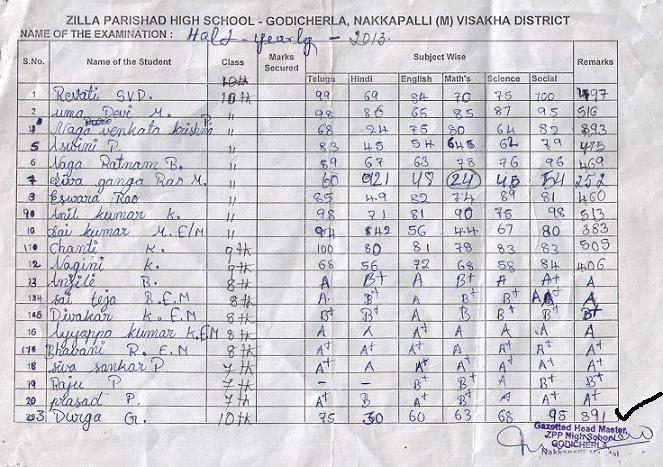 ZILLA PARISHAD HIGH SCHOOL - GODICHERLA, NAKKAPALLI (M) VISAKHA DISTRICT
NAME OF THE EXAMINATION : Half - yearly - 2013.
S.No. Name of the Student Class Marks Secured Subject Wise Remarks
Telugu Hindi English Math's Science Social
10th
1 Revati S.V.D. 10th 99 69 84 70 75 100 497
2 uma Devi M. " 98 86 65 85 87 95 516
Naga venkata krishna P. " 68 24 75 80 64 82 393
5 Asvini P. " 83 45 54 62 79
6 Naga Ratnam B. " 89 67 63 78 76 96 469
7 Siva ganga Rao M. " 60 21 48 24 45 54 252
Eswara Rao " 85 49 82 74 89 81 460
Anil kumar K. " 98 71 81 90 75 98 513
10 Sai kumar M. E/M " 94 42 56 44 67 80 383
Chanti K. 9th 100 80 81 78 83 83 505
12 Nagini K. 9th 68 56 72 68 58 84 406
13 B. 8th A B+ A B+ A A+ A
sai teja B.E.M 8th A B+ A B+ B+ A A
Divakar K. E.M 8th B+ B+ A B+ B+ B+
Ayyappa kumar K.E.M 8th A A A+ A A A A
Bhavani R. E.M 8th A+ A+ A+ A A+ A+ A+
18 Siva sankar P 7th A+ A A+ A+ A A+ A
19 Raju P 7th - - B+ B+ A B+ B+
20 prasad P. 7th A B A+ A A A+ A+
Durga G. 10th 75 30 60 63 68 95 391
Gazetted Head Master,
ZPP High School
GODICHERLA,
Nakkapalli Mandal